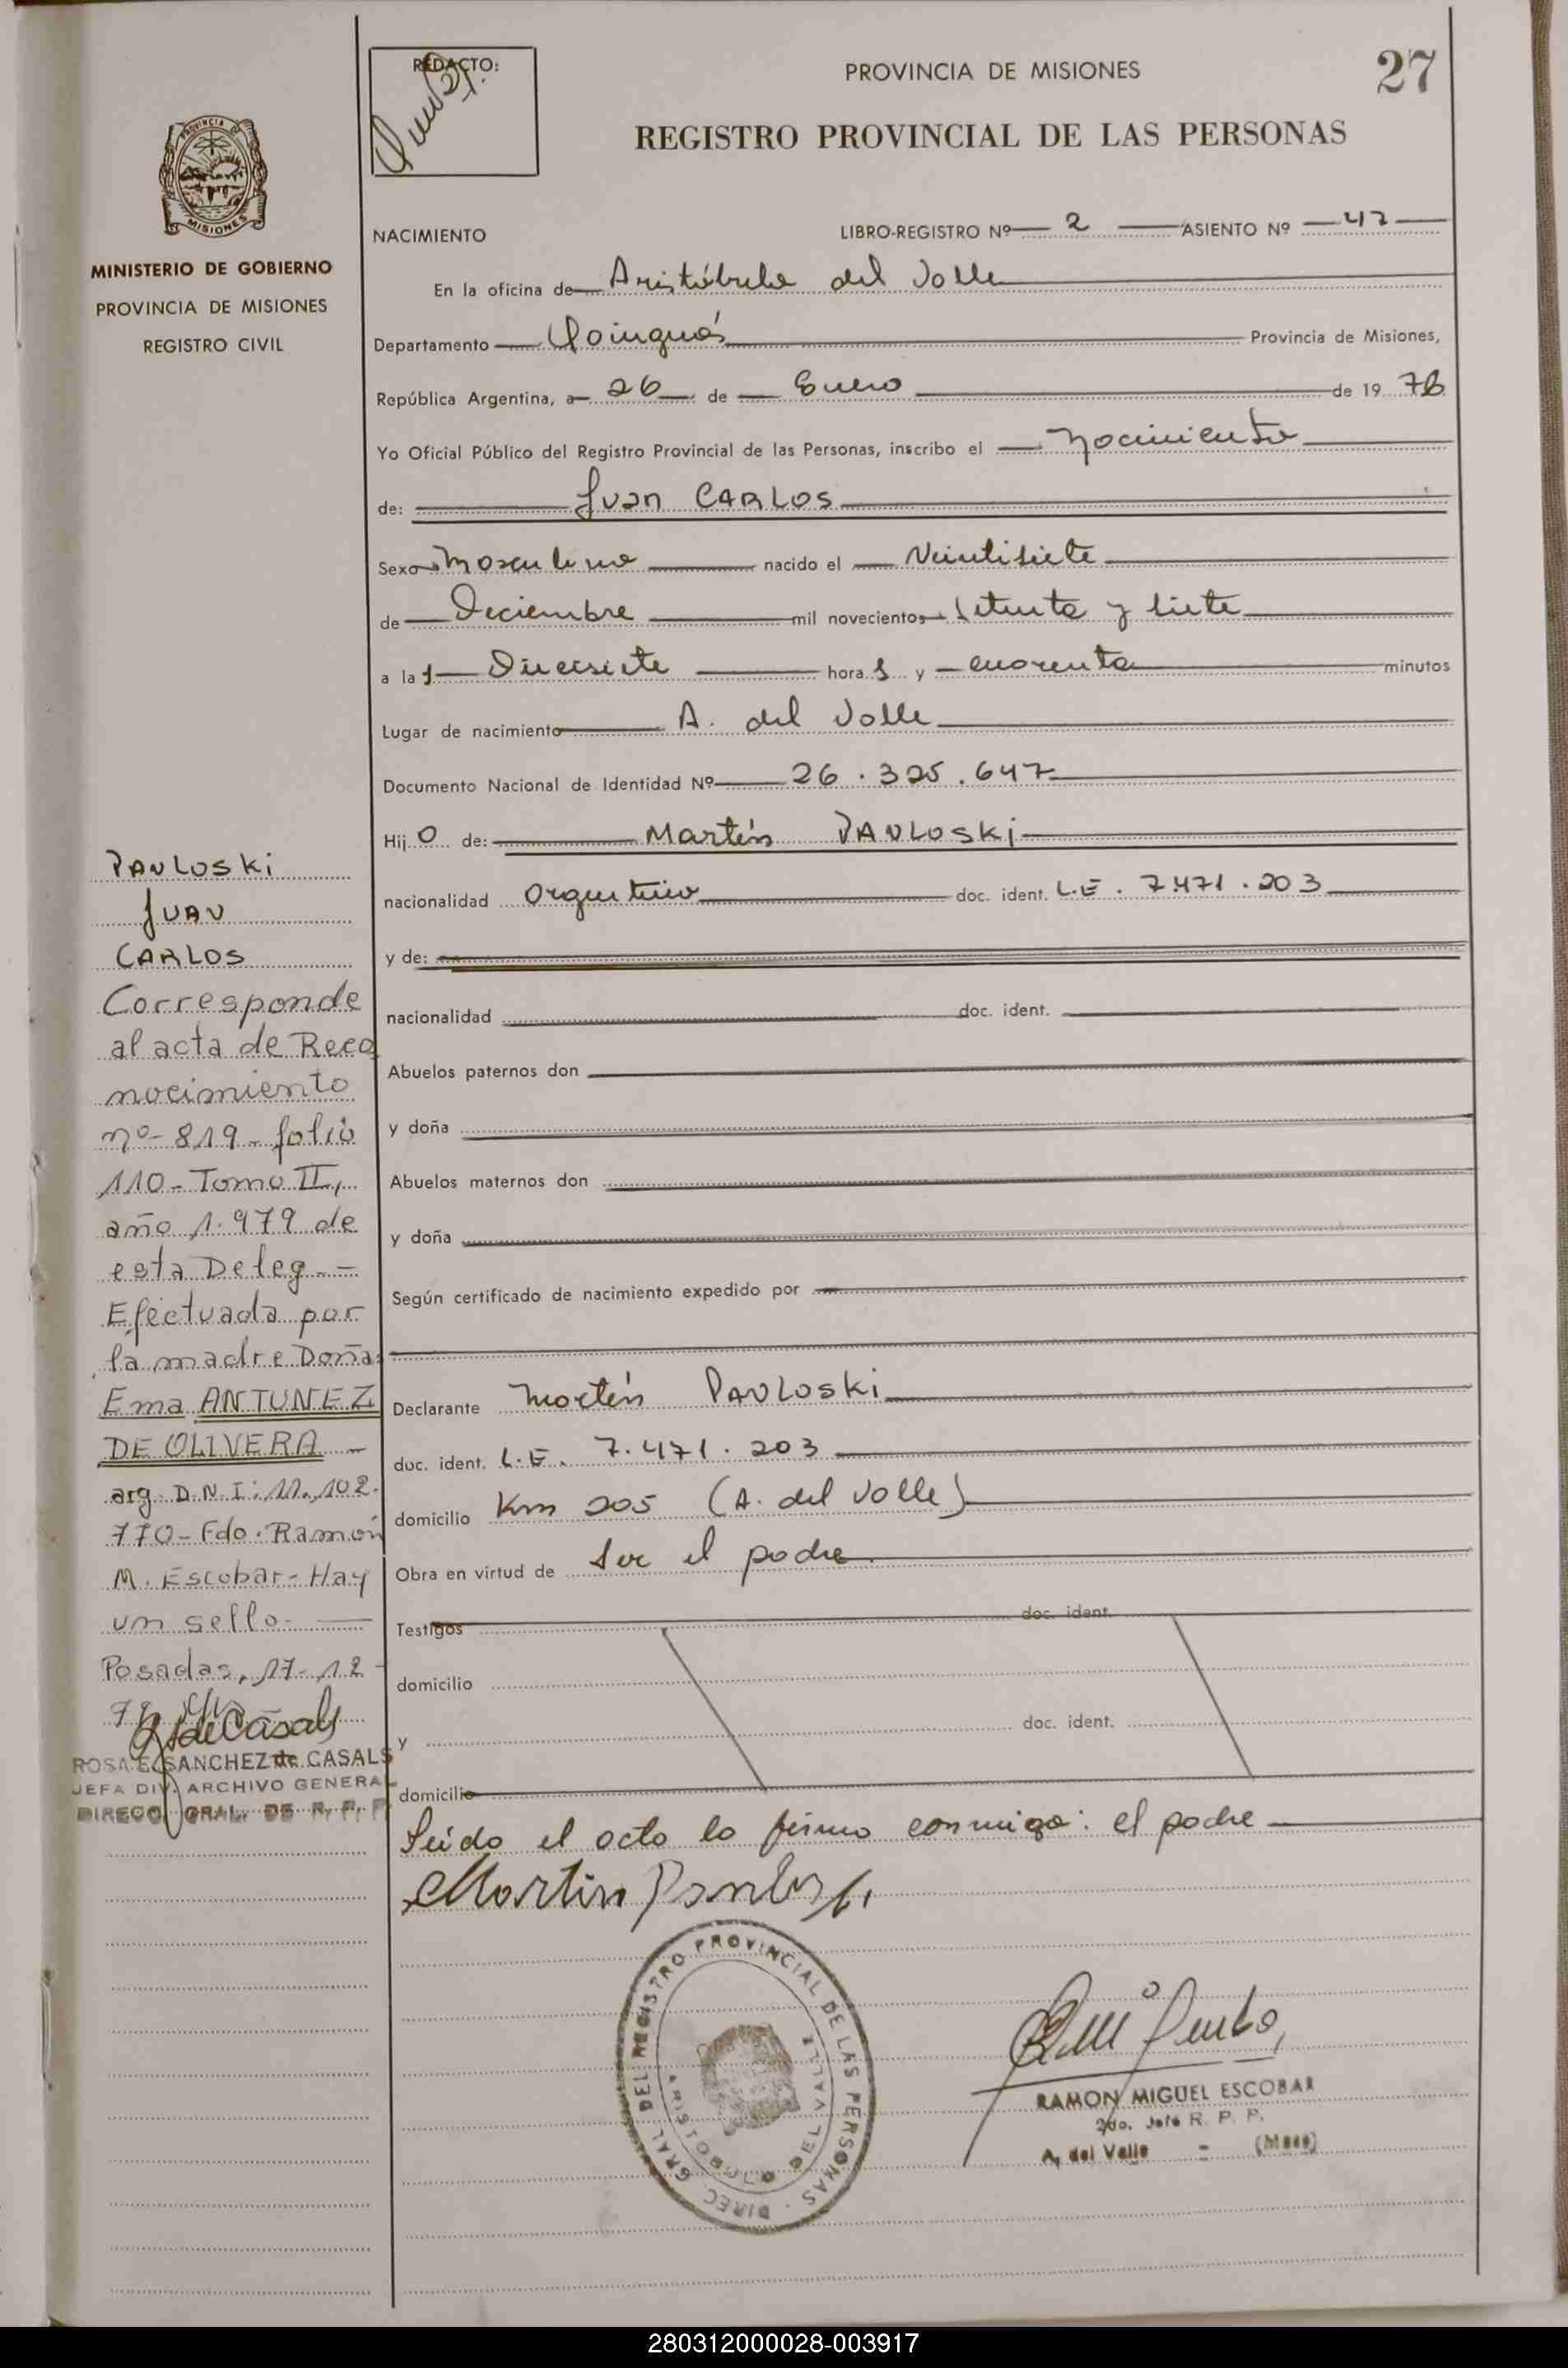 REDACTO:
PROVINCIA DE MISIONES
27
REGISTRO PROVINCIAL DE LAS PERSONAS
MISIONES
MINISTERIO DE GOBIERNO
PROVINCIA DE MISIONES
REGISTRO CIVIL
NACIMIENTO LIBRO-REGISTRO Nº 2 ASIENTO Nº 47
En la oficina de Aristóbulo del Valle
Departamento Cainguás Provincia de Misiones,
República Argentina, a 26 de Enero de 19 78
Yo Oficial Público del Registro Provincial de las Personas, inscribo el Nacimiento
de: Juan CARLOS
Sexo Masculino nacido el Veintisiete
de Diciembre mil novecientos setenta y siete
a la s Diecisiete hora s y cuarenta minutos
Lugar de nacimiento A. del Valle
Documento Nacional de Identidad Nº 26.325.647
Hij o de: Martín PAVLOSKi
nacionalidad Argentino doc. ident. L.E. 7.471.203
y de:
nacionalidad doc. ident.
Abuelos paternos don
y doña
Abuelos maternos don
y doña
Según certificado de nacimiento expedido por
Declarante Martín PAVLOSKi
doc. ident. L.E. 7.471.203
domicilio Km 205 (A. del Valle)
Obra en virtud de ser el padre
Testigos doc. ident.
domicilio
y doc. ident.
domicilio
Leído el acta la firma conmigo: el padre
PAVLOSKi
JUAN
CARLOS
Corresponde
al acta de Reco
nocimiento
nº- 819- folio
110- Tomo II,
año 1.979 de
esta Deleg.-
Efectuada por
la madre Doña:
Ema ANTUNEZ
DE OLIVERA -
arg. D.N.I: 11.102.
770- Fdo. Ramón
M. Escobar- Hay
un sello-
Posadas, 17-12-
79
ROSA E. SANCHEZ de CASALS
JEFA DIV. ARCHIVO GENERAL
DIRECC. GRAL. DE R. P. P.
DIREC. GRAL DEL REGISTRO PROVINCIAL DE LAS PERSONAS
ARISTOBULO DEL VALLE
RAMON MIGUEL ESCOBAR
2do. Jefe R. P. P.
A. del Valle - (Mnes)
280312000028-003917